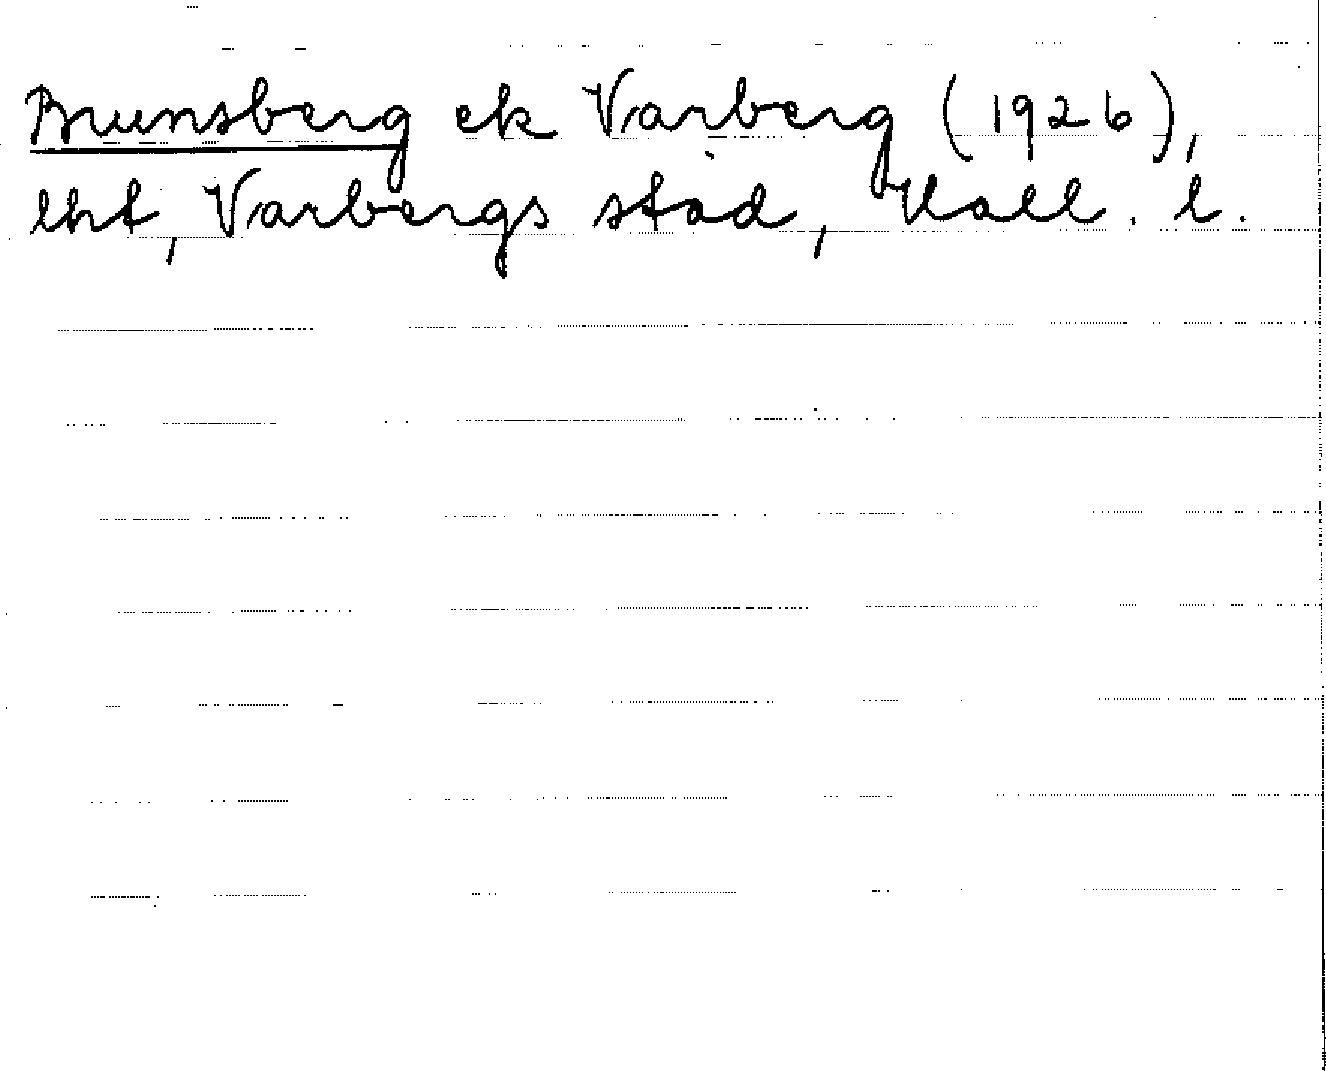 Brunsberg ek Varberg (1926),
lht, Varbergs stad, Hall. l.